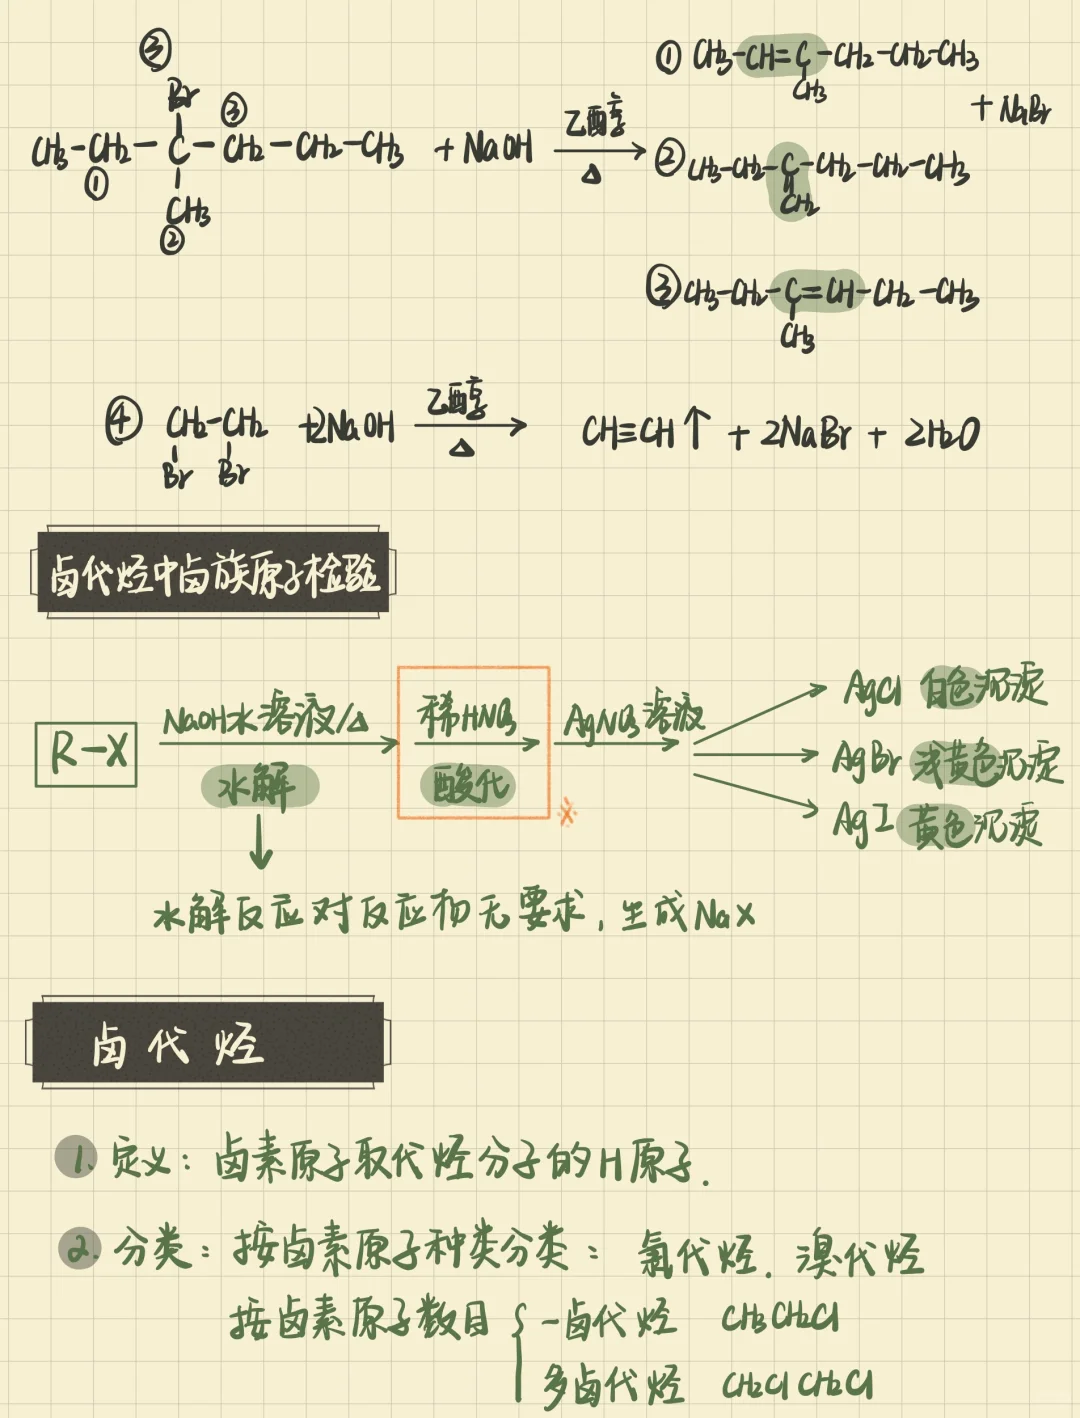 ③
Br ③
CH3-CH2-C-CH2-CH2-CH3 + NaOH 乙醇 △
①
CH3
②
① CH3-CH=C-CH2-CH2-CH3
CH3
+ NaBr
② CH3-CH2-C-CH2-CH2-CH3
CH2
③ CH3-CH2-C=CH-CH2-CH3
CH3
④ CH2-CH2 +2NaOH 乙醇 △ CH≡CH↑ + 2NaBr + 2H2O
Br Br
卤代烃中卤族原子检验
R-X NaOH水溶液/△ 水解 稀HNO3 酸化 AgNO3溶液
AgCl 白色沉淀
AgBr 浅黄色沉淀
AgI 黄色沉淀
水解反应对反应物无要求,生成NaX
卤代烃
1. 定义:卤素原子取代烃分子的H原子.
2. 分类:按卤素原子种类分类:氯代烃.溴代烃
按卤素原子数目 一卤代烃 CH3CH2Cl
多卤代烃 CH2ClCH2Cl